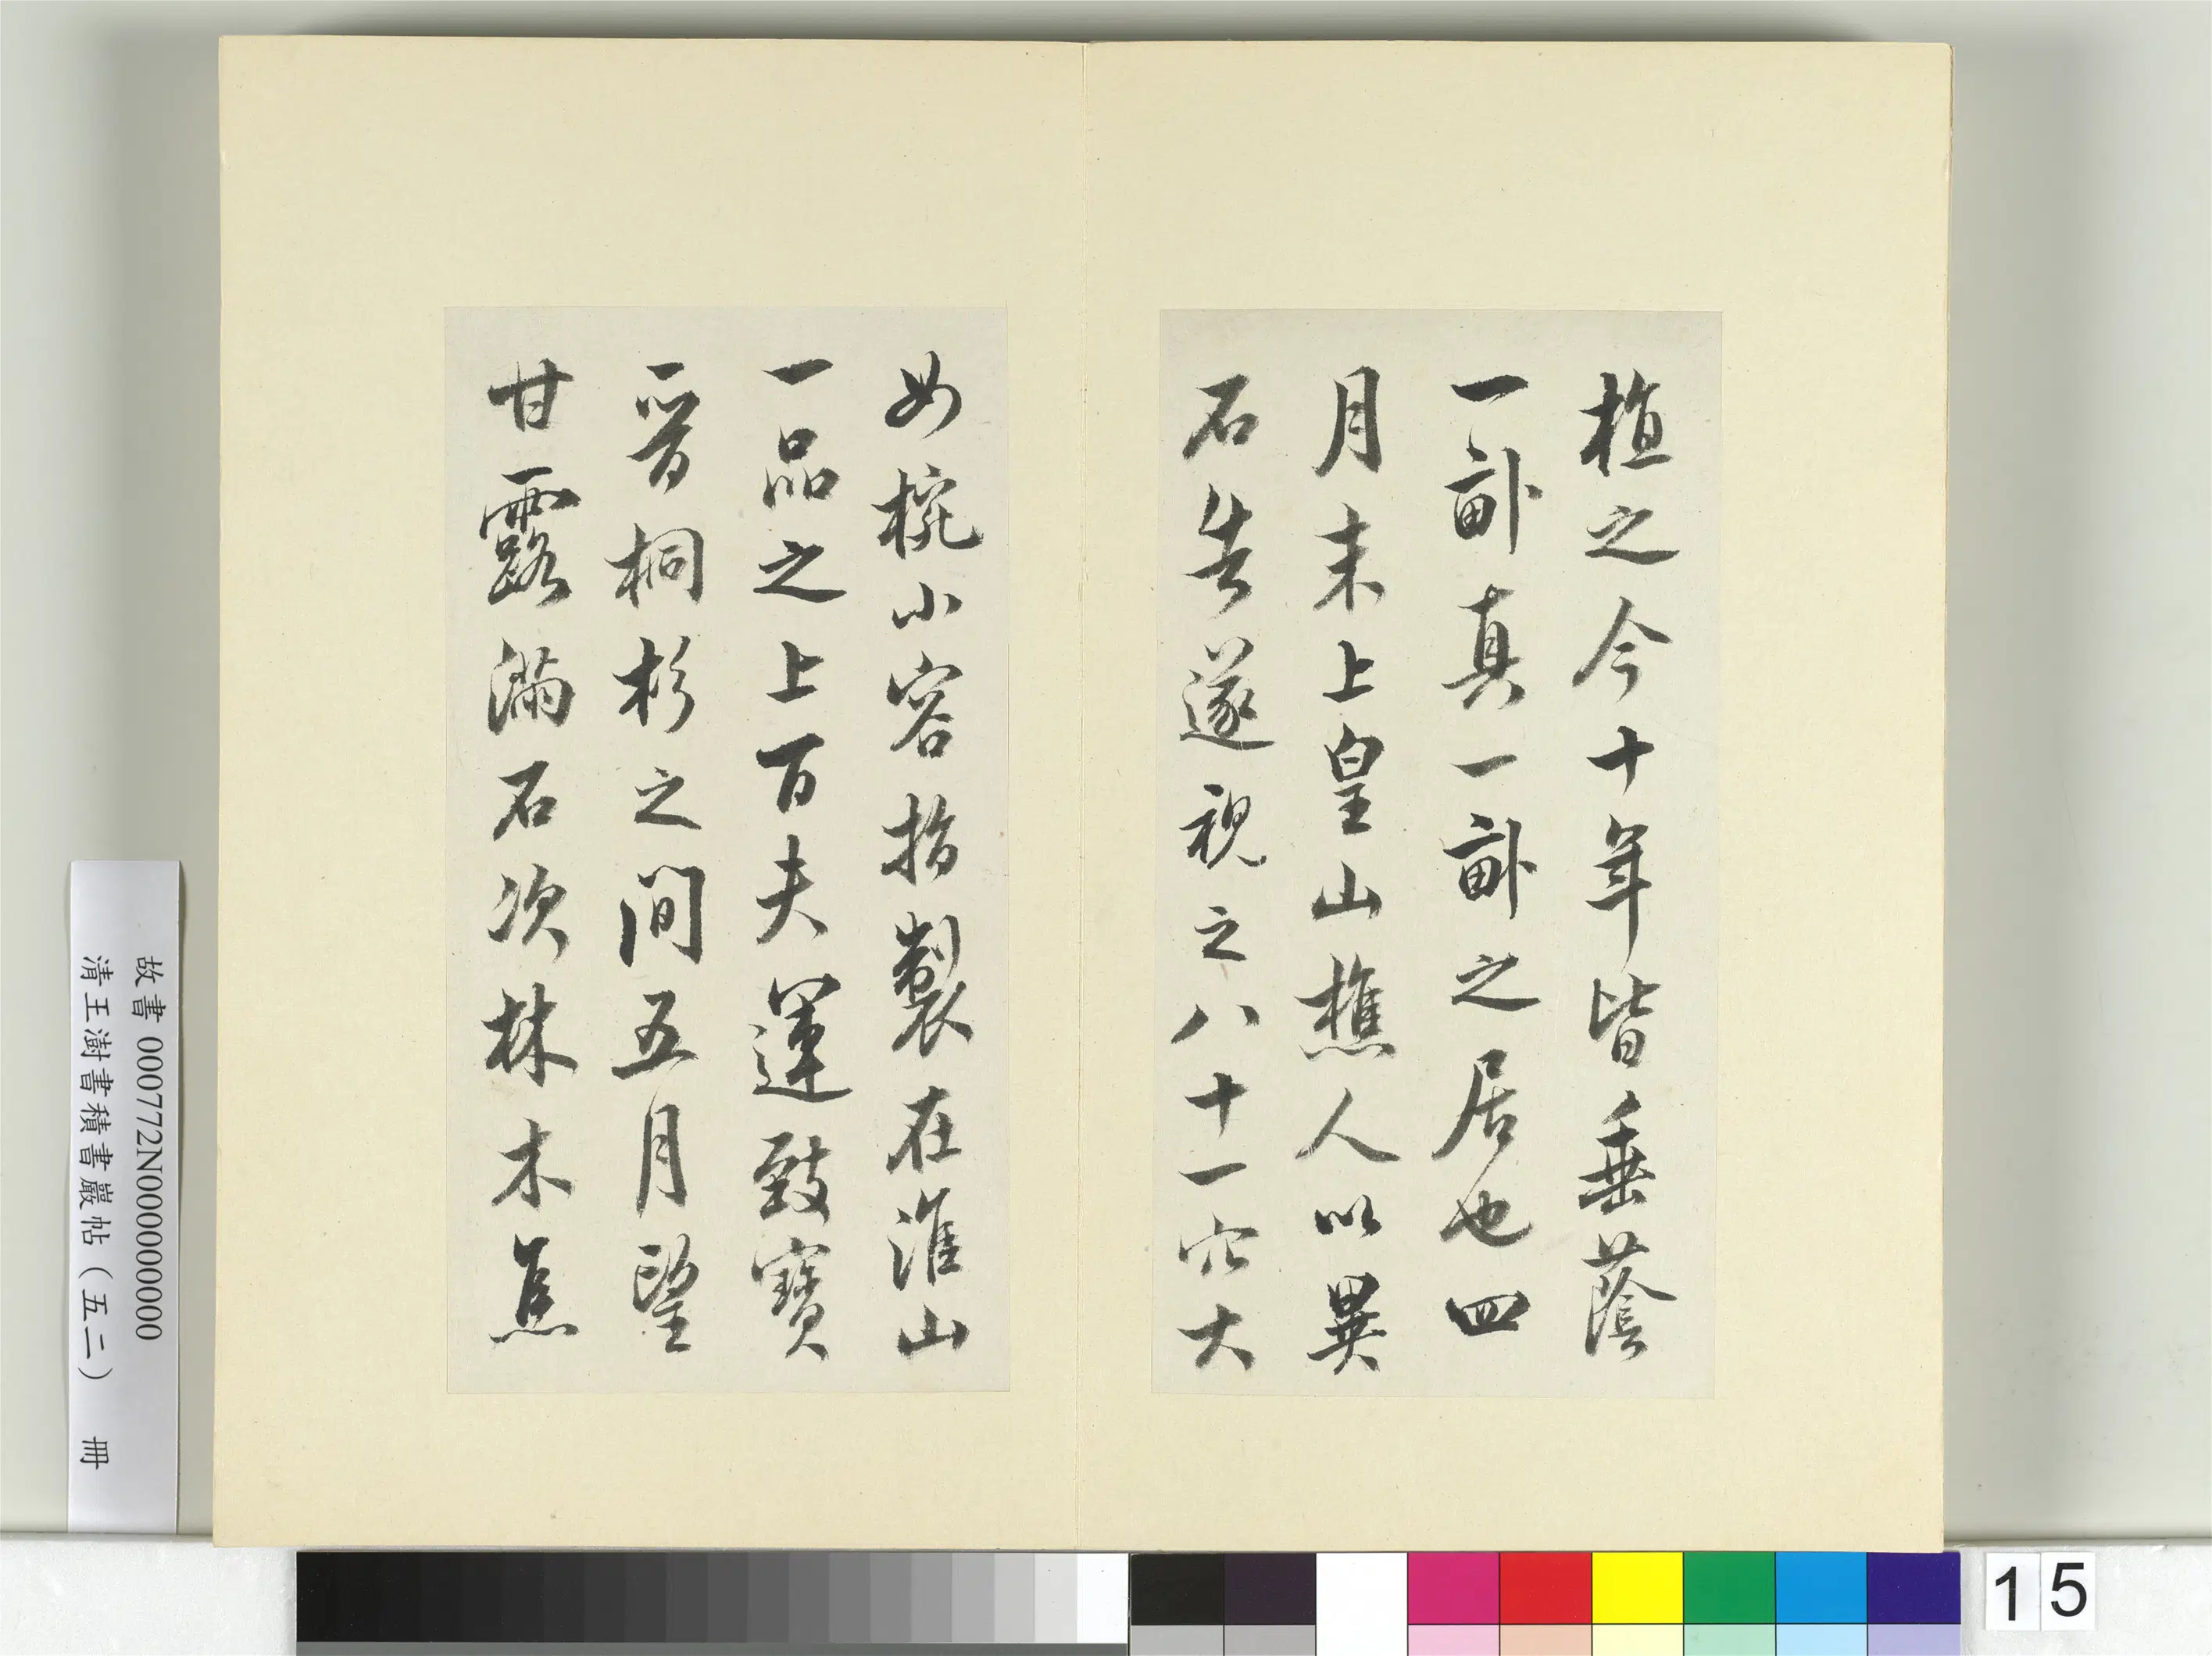 植之今十年皆垂蔭
一畝真一畝之居也四
月末上皇山樵人以異
石告遂視之八十一穴大
如椀小容指製在淮山
一品之上百夫運致寶
晉桐杉之間五月望
甘露滿石次林木焦
故書 000772N000000000
清王澍書積書巖帖（五二） 冊
15